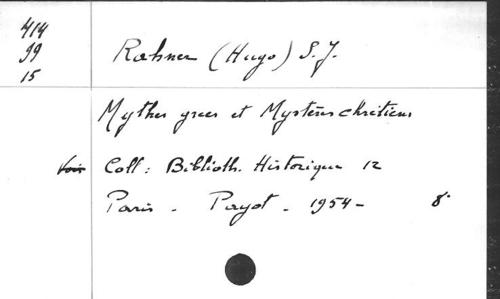 414
99
15
Rahner (Hugo) S.J.
Mythes grecs et Mystères chrétiens
Voir Coll: Biblioth. Historique 12
Paris - Payot - 1954 - 8°